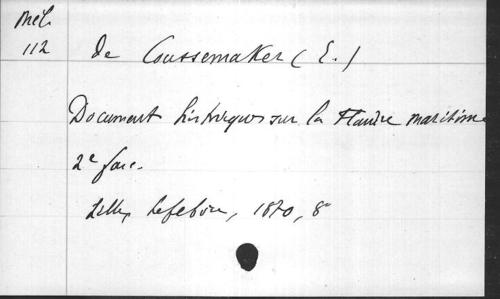 Mél.
112
de Coussemaker (E.)
Documents historiques sur la Flandre maritime
2e fasc.
Lille, Lefebvre, 1870, 8°